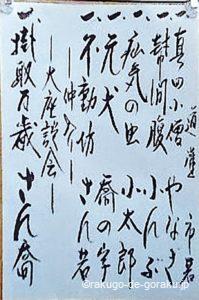 道灌 市若
一、真田小僧 やなぎ
一、幇間腹 小んぶ
一、疝気の虫 小太郎
一、元犬 喬の字
一、不動坊 さん若
―仲入り―
―大座談会―
一、掛取万歳 さん喬
©rakugo-de-goraku.jp